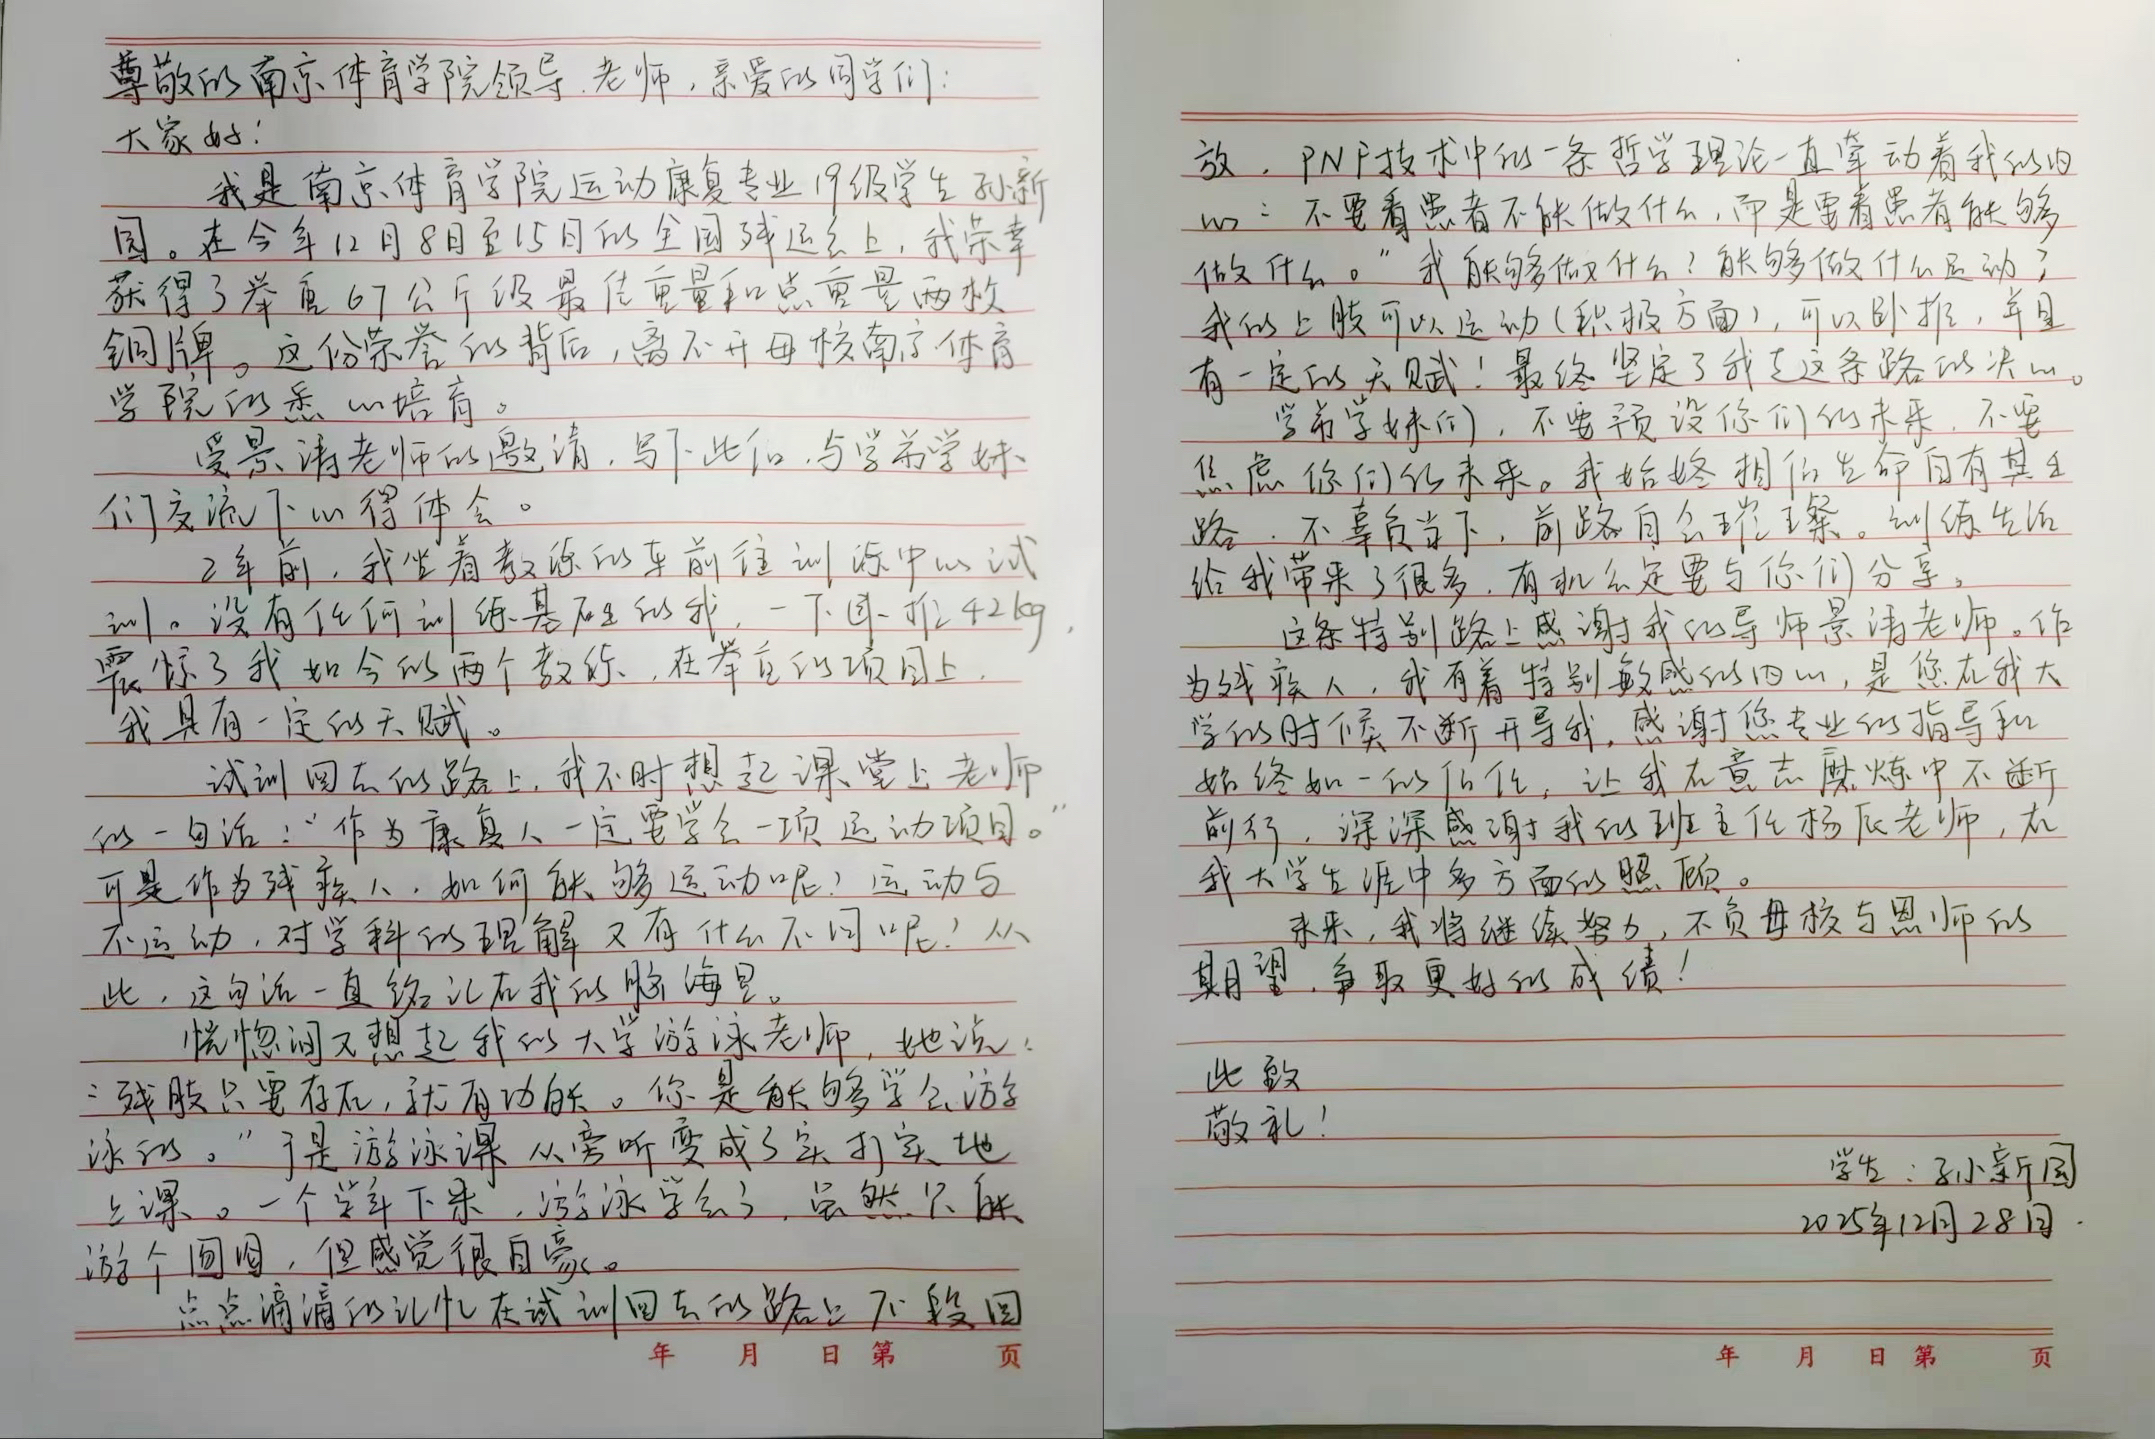 尊敬的南京体育学院领导、老师,亲爱的同学们:
大家好!
我是南京体育学院运动康复专业19级学生孙新
国。在今年12月8日至15日的全国残运会上,我荣幸
获得了举重67公斤级最佳重量和总重量两枚
铜牌。这份荣誉的背后,离不开母校南京体育
学院的悉心培育。
受景涛老师的邀请,写下此信,与学弟学妹
们交流下心得体会。
2年前,我坐着教练的车前往训练中心试
训。没有任何训练基础的我,一下推42kg,
震惊了我如今的两个教练,在举重的项目上,
我具有一定的天赋。
试训回去的路上,我不时想起课堂上老师
的一句话:“作为康复人一定要学会一项运动项目。”
可是作为残疾人,如何能够运动呢?运动与
不运动,对学科的理解又有什么不同呢?从
此,这句话一直铭记在我的脑海里。
恍惚间又想起我的大学游泳老师,她说:
“残肢只要存在,就有功能。你是能够学会游
泳的。”于是游泳课从旁听变成了实打实地
上课。一个学年下来,游泳学会了,虽然只能
游个圆圈,但感觉很自豪。
点点滴滴的记忆在试训回去的路上不段回
放,PNF技术中的一条哲学理论一直牵动着我的内
心:“不要看患者不能做什么,而是要看患者能够
做什么。”我能够做什么?能够做什么运动?
我的上肢可以运动(积极方面),可以卧推,并且
有一定的天赋!最终坚定了我走这条路的决心。
学弟学妹们,不要预设你们的未来,不要
焦虑你们的未来。我始终相信生命自有其出
路,不辜负当下,前路自会璀璨。训练生活
给我带来了很多,有机会定要与你们分享。
这条特别路上感谢我的导师景涛老师。作
为残疾人,我有着特别敏感的内心,是您在我大
学的时候不断开导我,感谢您专业的指导和
始终如一的信任,让我在意志磨炼中不断
前行,深深感谢我的班主任杨辰老师,在
我大学生涯中多方面的照顾。
未来,我将继续努力,不负母校与恩师的
期望,争取更好的成绩!
此致
敬礼!
学生:孙新国
2025年12月28日.
年 月 日 第 页
年 月 日 第 页